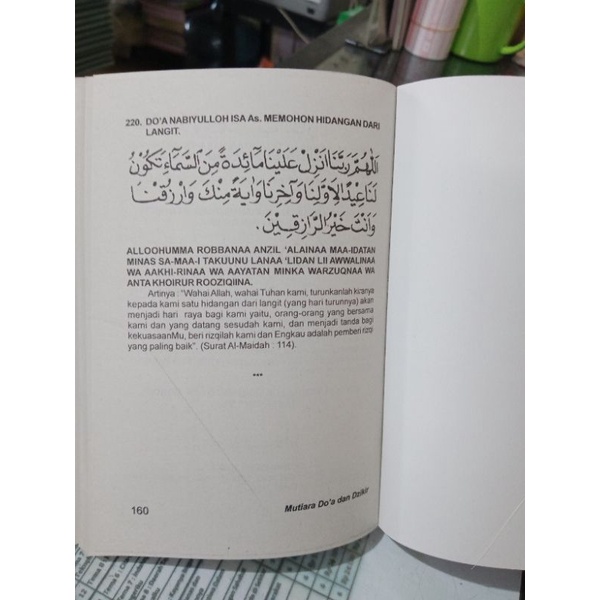 220. DO'A NABIYULLOH ISA As. MEMOHON HIDANGAN DARI
LANGIT.
اَللّٰهُمَّ رَبَّنَا اَنْزِلْ عَلَيْنَا مَآئِدَةً مِنَ السَّمَآءِ تَكُوْنُ
لَنَا عِيْدًا لِاَوَّلِنَا وَآخِرِنَا وَاٰيَةً مِنْكَ وَارْزُقْنَا
وَاَنْتَ خَيْرُ الرَّازِقِيْنَ.
ALLOOHUMMA ROBBANAA ANZIL 'ALAINAA MAA-IDATAN
MINAS SA-MAA-I TAKUUNU LANAA 'LIDAN LII AWWALINAA
WA AAKHI-RINAA WA AAYATAN MINKA WARZUQNAA WA
ANTA KHOIRUR ROOZIQIINA.
Artinya : "Wahai Allah, wahai Tuhan kami, turunkanlah kiranya
kepada kami satu hidangan dari langit (yang hari turunnya) akan
menjadi hari raya bagi kami yaitu, orang-orang yang bersama
kami dan yang datang sesudah kami, dan menjadi tanda bagi
kekuasaanMu, beri rizqilah kami dan Engkau adalah pemberi rizqi
yang paling baik". (Surat Al-Maidah : 114).
***
160
Mutiara Do'a dan Dzikir